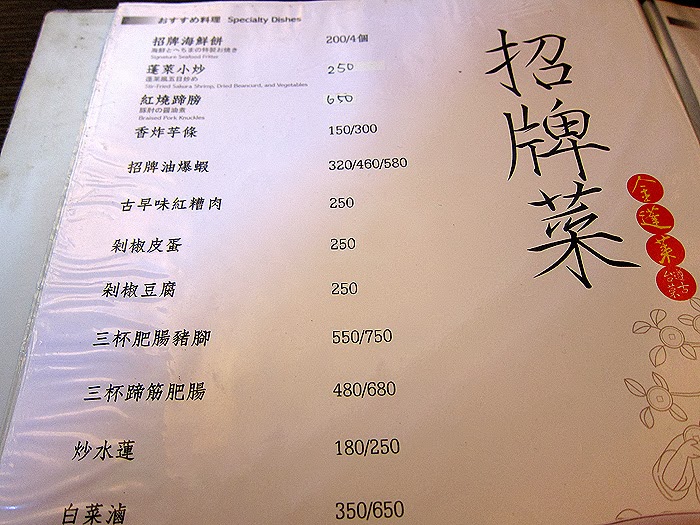 おすすめ料理 Specialty Dishes
招牌海鮮餅 200/4個
海鮮とへちまの特製お焼き
Signature Seafood Fritter
蓬萊小炒 250
蓬萊風五目炒め
Stir-Fried Sakura Shrimp, Dried Beancurd, and Vegetables
紅燒蹄膀 650
豚肘の醤油煮
Braised Pork Knuckles
香炸芋條 150/300
招牌油爆蝦 320/460/580
古早味紅糟肉 250
剁椒皮蛋 250
剁椒豆腐 250
三杯肥腸豬腳 550/750
三杯蹄筋肥腸 480/680
炒水蓮 180/250
白菜滷 350/650
招牌菜
金蓬萊
遵古台菜